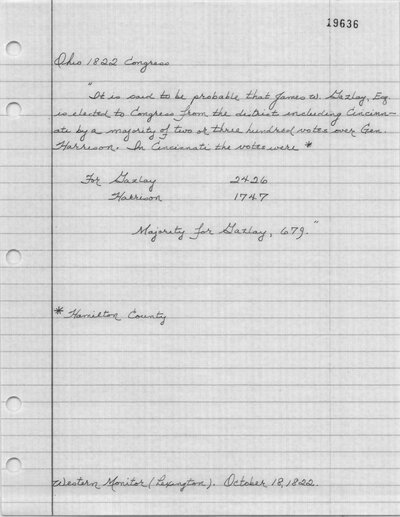 19636
Ohio 1822 Congress
"It is said to be probable that James W. Gazlay, Esq
is elected to Congress from the district including Cincinn-
ate by a majority of two or three hundred votes over Gen.
Harrison. In Cincinnati the votes were *
For Gazlay 2426
Harrison 1747
Majority for Gazlay, 679."
* Hamilton County
Western Monitor (Lexington). October 18, 1822.